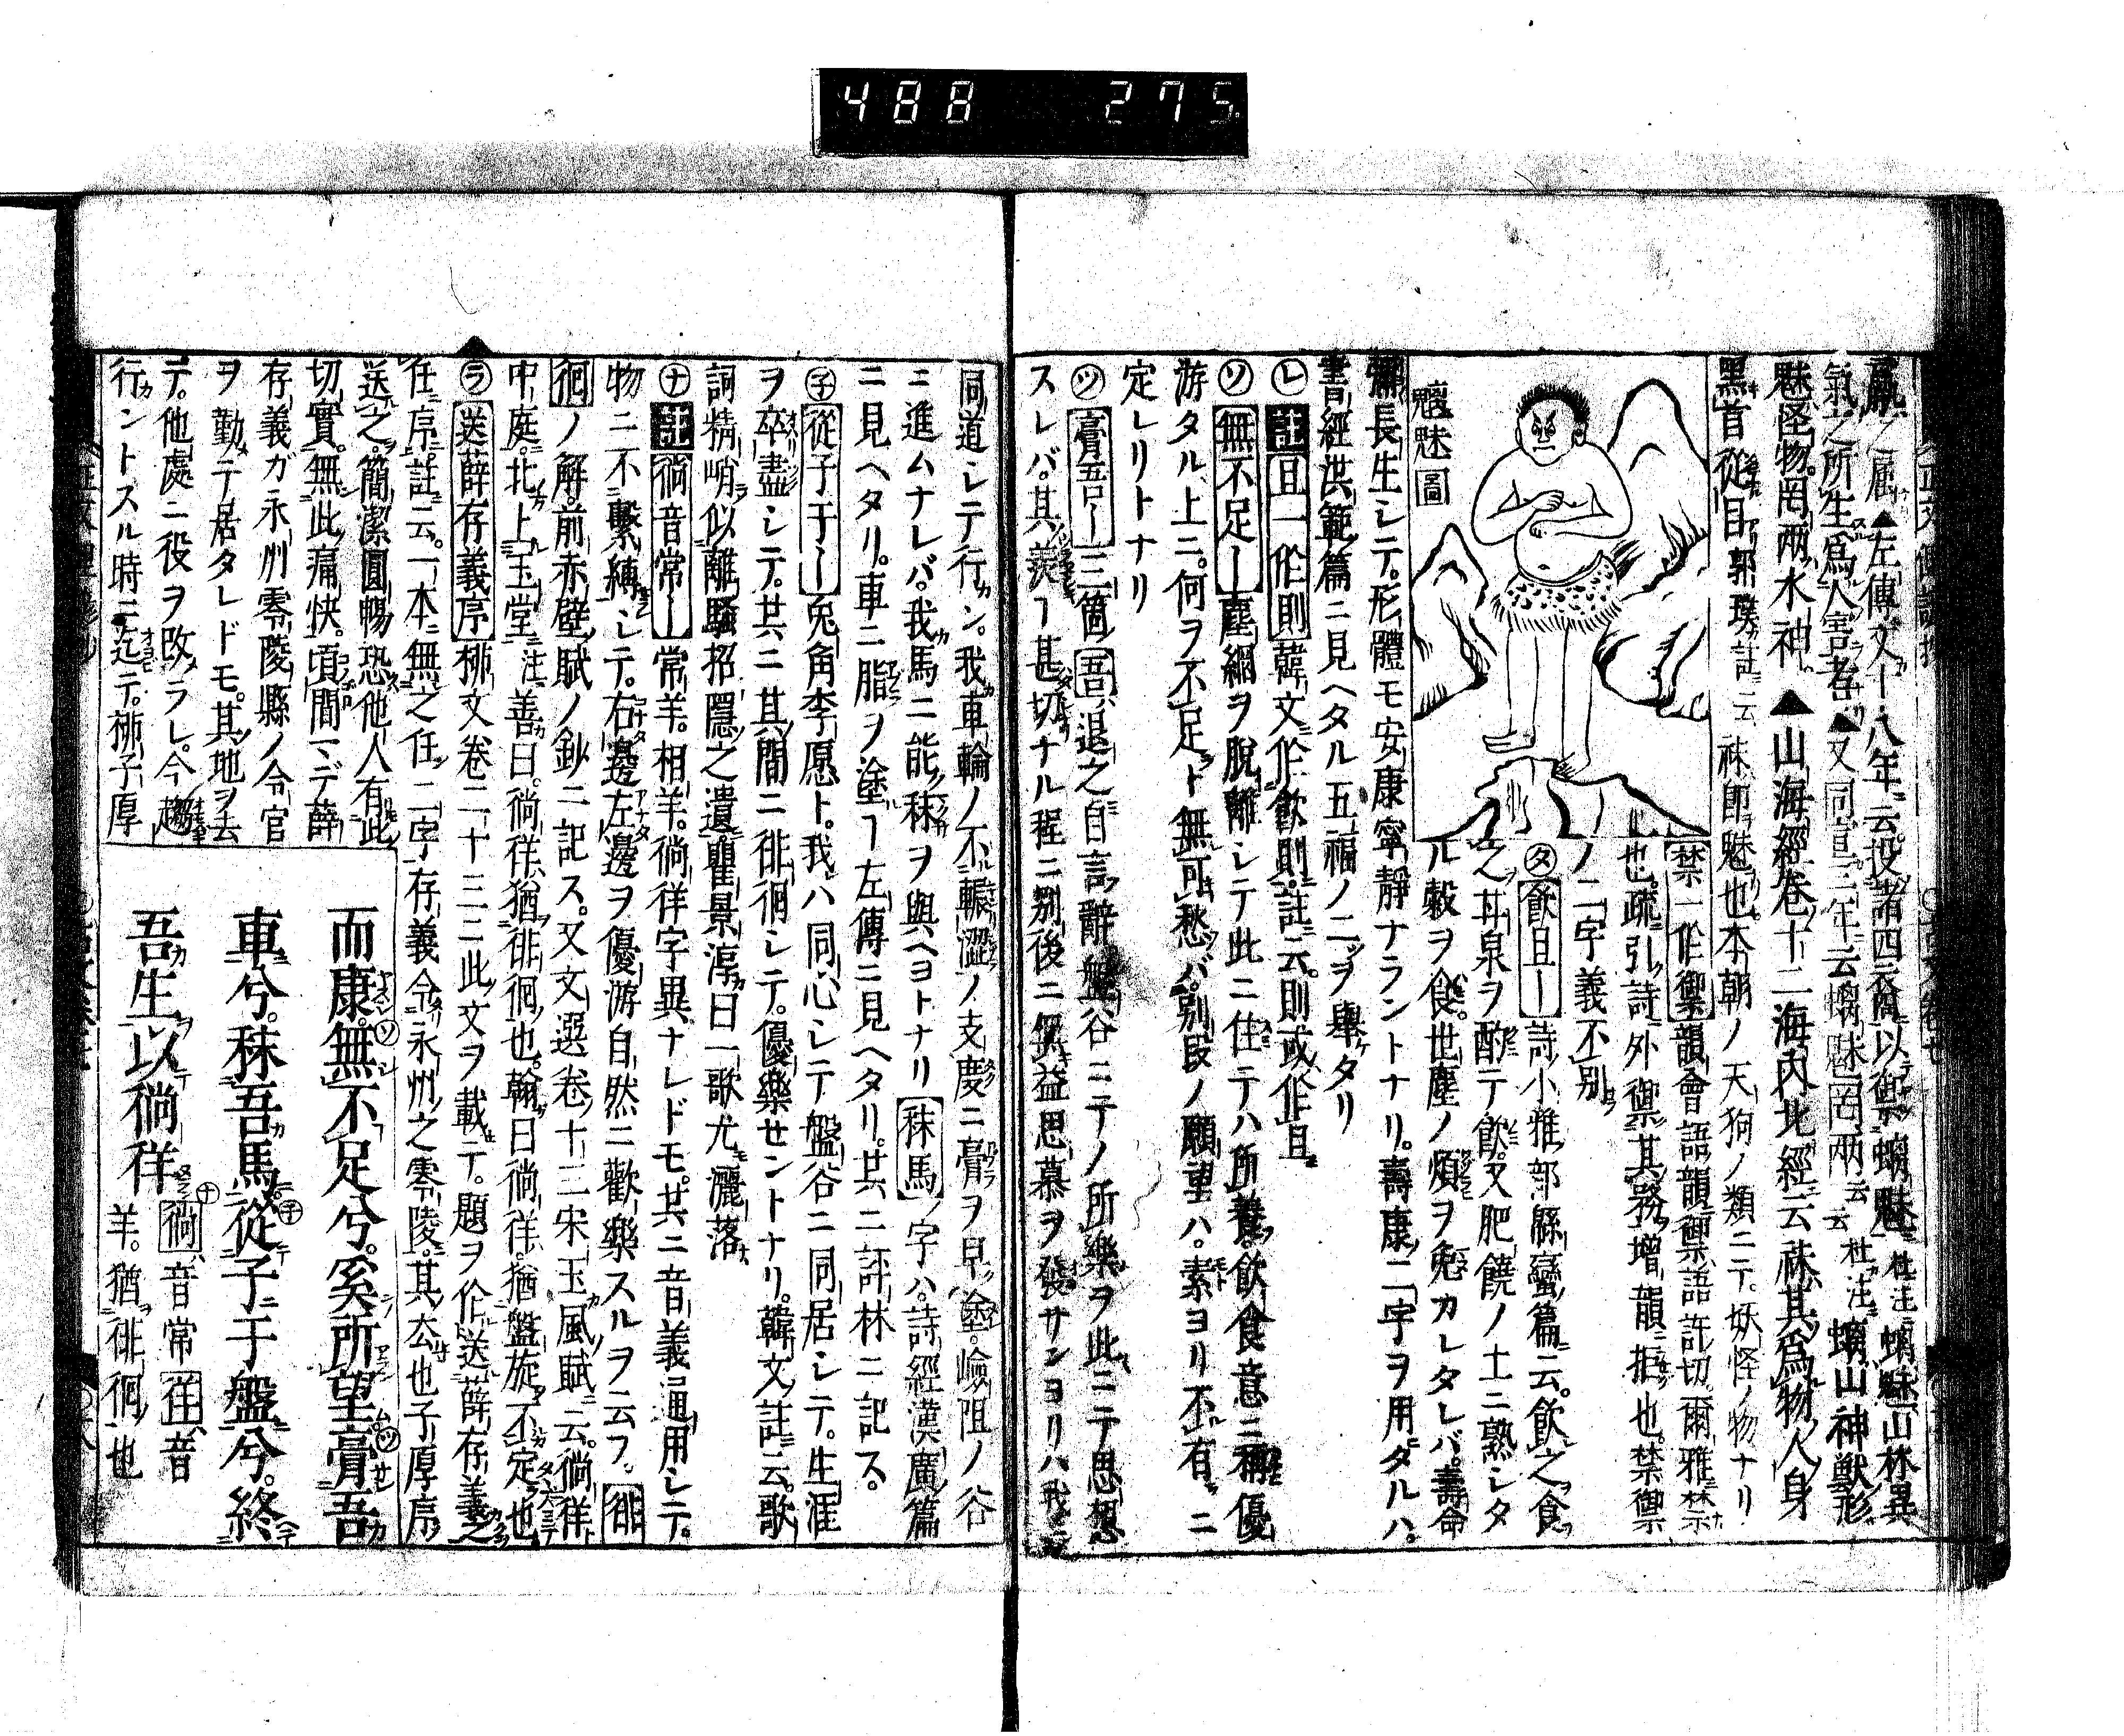 488 275
蠃之屬▲左傳文十八年云投諸四裔以禦螭魅杜注螭魅山林異
氣之所生爲人害者▲又同宣三年云螭魅罔兩云云杜注螭山神獸形
魅怪物罔兩水神▲山海經卷十二海内北經云袜其爲物人身
黑首從目郭璞註云袜即魅也本朝ノ天狗ノ類ニテ妖怪ノ物ナリ
魑魅圖
禁一作禦韻會語韻禦語許切爾雅禁
也疏引詩外禦其務增韻拒也禁禦
ノ二字義不別
タ飮且ー詩小雅部緜蠻篇云飮之食
之甘泉ヲ酌テ飮又肥饒ノ土ニ熟シタ
ル穀ヲ食世塵ノ煩ヲ免カレタレバ壽命
彌長生シテ形體モ安康寧靜ナラントナリ壽康二字ヲ用タルハ
書經洪範篇ニ見ヘタル五福ノ二ツヲ舉タリ
レ註且一作則韓文作飮則註云則或作且
ソ無不足ー塵網ヲ脫離シテ此ニ住テハ所養飮食意ニ稱優
游タル上ニ何ヲ不足ト無可愁バ別段ノ願望ハ素ヨリ不有ニ
定レリトナリ
ツ膏吾ー三箇吾退之自言辭盤谷ニテノ所樂ヲ此ニテ思想
スレバ其羨ー甚切ナル程ニ別後ニ無益思慕ヲ發サンヨリハ我モ
同道シテ行ン我車輪ノ不輾澀ノ支度ニ膏ヲ早塗嶮阻ノ谷
ニ進ムナレバ我馬ニ能秣ヲ與ヘヨトナリ秣馬ノ字ハ詩經漢廣篇
ニ見ヘタリ車ニ脂ヲ塗ー左傳ニ見ヘタリ共ニ評林ニ記ス
子從子于ー兔角李愿ト我ハ同心シテ盤谷ニ同居シテ生涯
ヲ卒盡シテ共ニ其間ニ徘徊シテ優樂セントナリ韓文註云歌
詞精峭似離騷招隱之遺瞿景淳曰一歌尤灑落
ナ註徜音常ー常羊相羊徜徉字異ナレドモ共ニ音義通用シテ
物ニ不繫縛シテ右邊左邊ヲ優游自然ニ歡樂スルヲ云フ徘
徊ノ解前赤壁賦ノ鈔ニ記ス又文選卷十三宋玉風賦云徜徉
中庭北上玉堂注善曰徜徉猶徘徊也翰曰徜徉猶盤旋不定也
ラ送薛存義序栁文卷二十三ニ此文ヲ載テ題ヲ作送薛存義之
任序註云一本無之任二字存義令永州之零陵其去也子厚序
送之簡潔圓暢恐他人有此
切實無此痛快頃間マデ薛
存義ガ永州零陵縣ノ令官
ヲ勤テ居タレドモ其地ヲ去
テ他處ニ役ヲ改ラレ今趨
行ントスル時ニ迄テ栁子厚
而康無不足兮奚所望膏吾
車兮秣吾馬從子于盤兮終
吾生以徜徉徜音常徉音
羊猶徘徊也